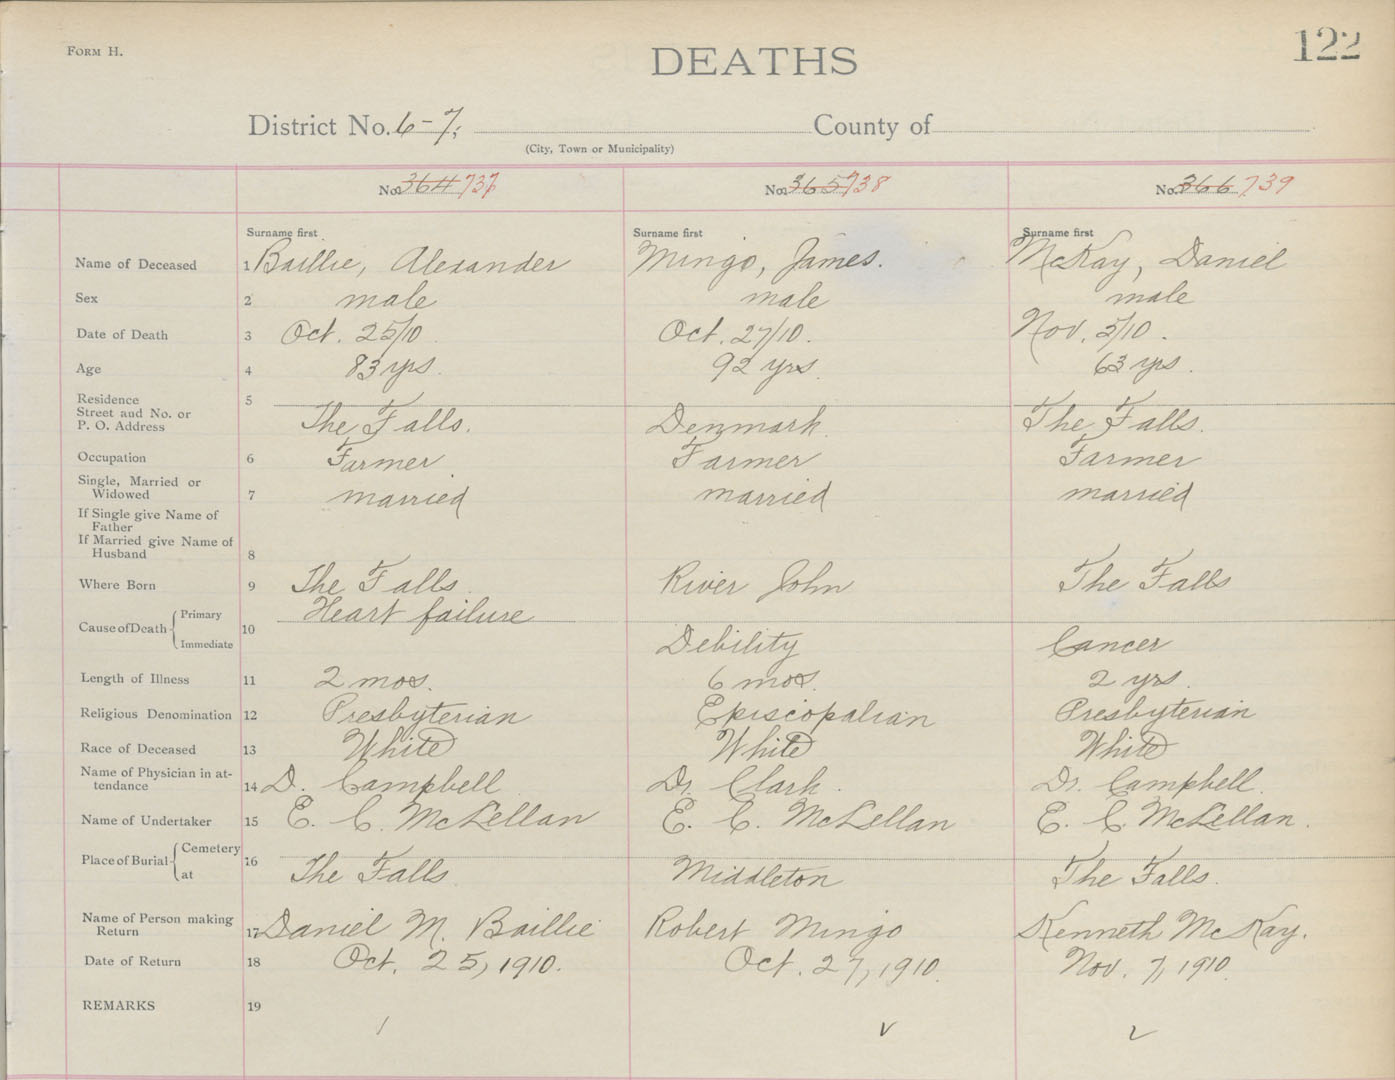 FORM H.
DEATHS
122
District No. 6-7; County of
(City, Town or Municipality)
No. 364 737 No. 365 738 No. 366 739
Surname first Surname first Surname first
Name of Deceased 1 Baillie, Alexander Mingo, James. McKay, Daniel
Sex 2 male male male
Date of Death 3 Oct. 25/10. Oct. 27/10. Nov. 5/10.
Age 4 83 yrs. 92 yrs. 63 yrs.
Residence 5
Street and No. or
P. O. Address The Falls. Denmark. The Falls.
Occupation 6 Farmer Farmer Farmer
Single, Married or
Widowed 7 married married married
If Single give Name of
Father
If Married give Name of
Husband 8
Where Born 9 The Falls River John The Falls
Heart failure
Cause of Death Primary
Immediate 10 Debility Cancer
Length of Illness 11 2 mos. 6 mos. 2 yrs.
Religious Denomination 12 Presbyterian Episcopalian Presbyterian
Race of Deceased 13 White White White
Name of Physician in at-
tendance 14 D. Campbell Dr. Clark. Dr. Campbell.
Name of Undertaker 15 E. C. McLellan E. C. McLellan E. C. McLellan.
Place of Burial Cemetery 16
at The Falls Middleton The Falls.
Name of Person making
Return 17 Daniel M. Baillie Robert Mingo Kenneth McKay.
Date of Return 18 Oct. 25, 1910. Oct. 27, 1910. Nov. 7, 1910
REMARKS 19